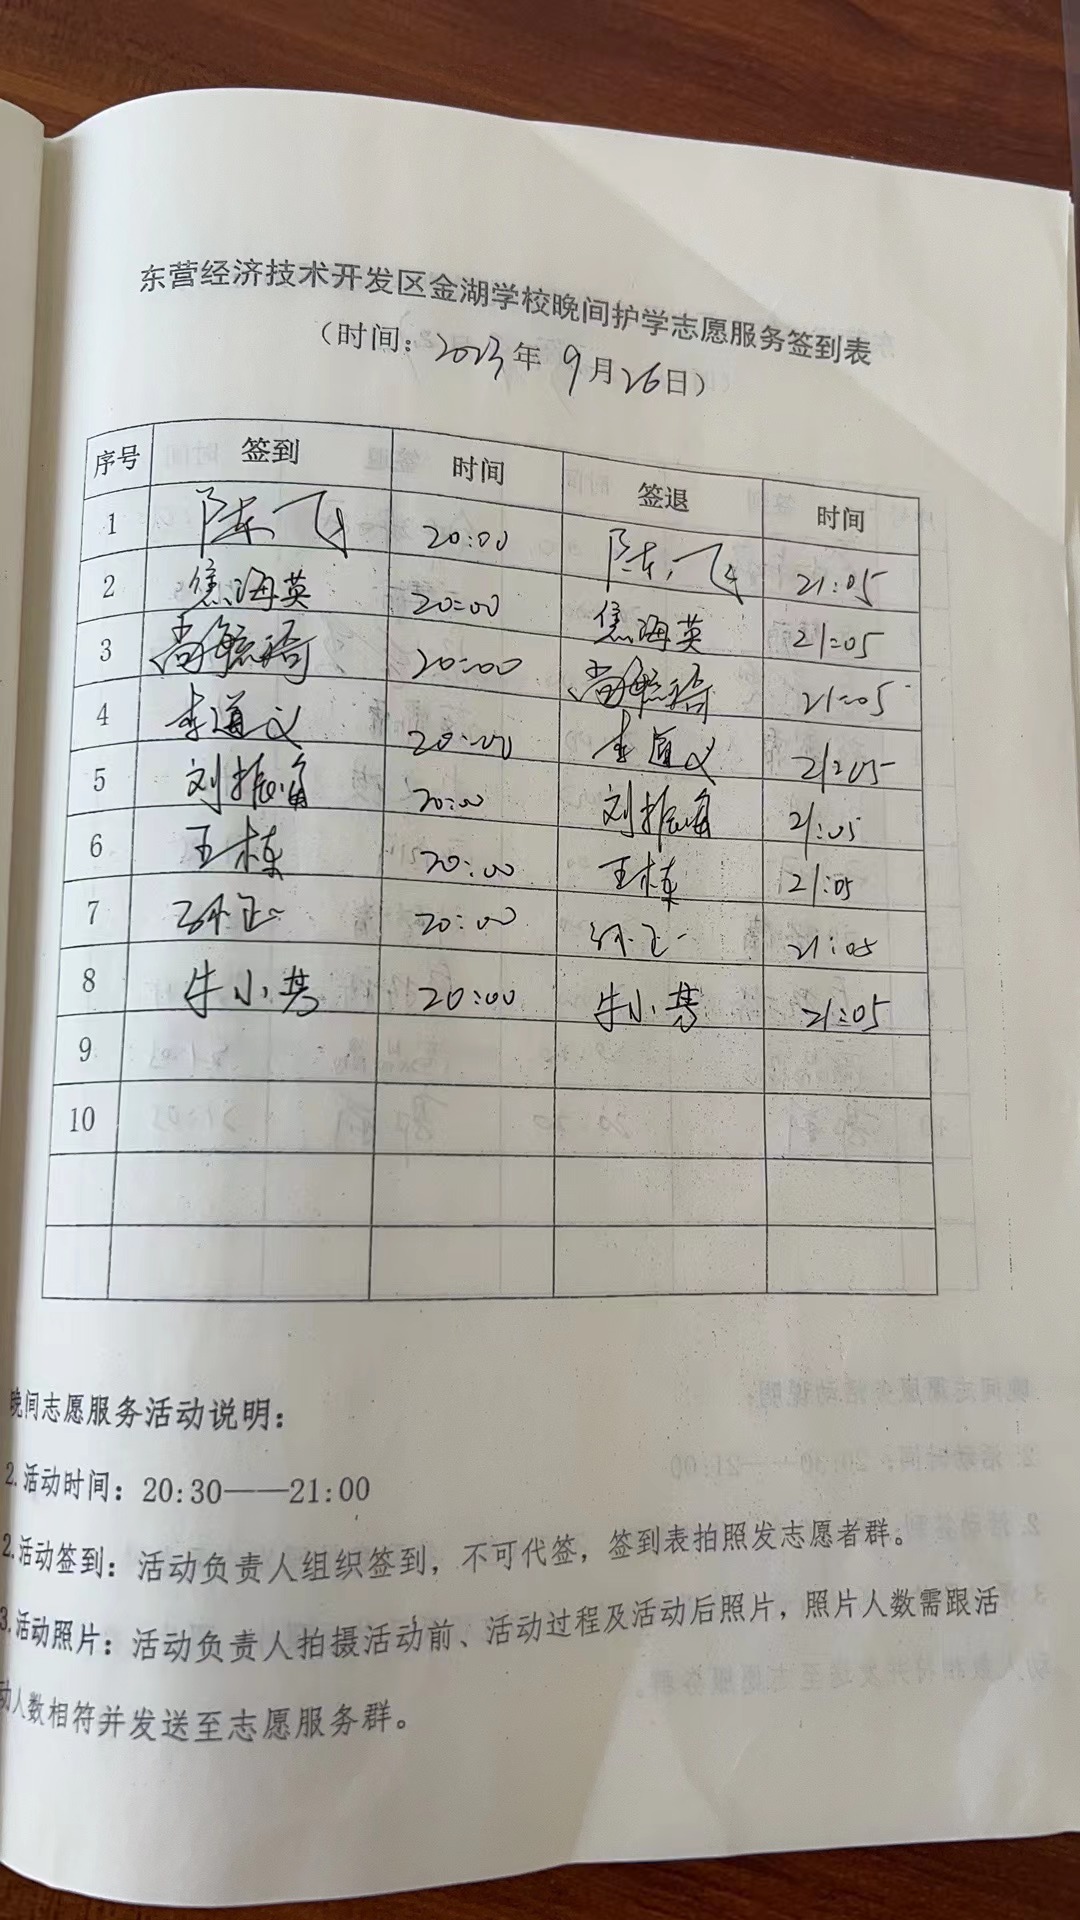 东营经济技术开发区金湖学校晚间护学志愿服务签到表
（时间：2023年9月26日）
序号 签到 时间 签退 时间
1 陈飞 20:00 陈飞 21:05
2 焦海英 20:00 焦海英 21:05
3 尚毓琦 20:00 尚毓琦 21:05
4 李道义 20:00 李道义 21:05
5 刘振海 20:00 刘振海 21:05
6 王栋 20:00 王栋 21:05
7 孙正一 20:00 孙正一 21:05
8 牛小芳 20:00 牛小芳 21:05
9
10
晚间志愿服务活动说明：
2.活动时间：20:30——21:00
2.活动签到：活动负责人组织签到，不可代签，签到表拍照发志愿者群。
3.活动照片：活动负责人拍摄活动前、活动过程及活动后照片，照片人数需跟活
动人数相符并发送至志愿服务群。